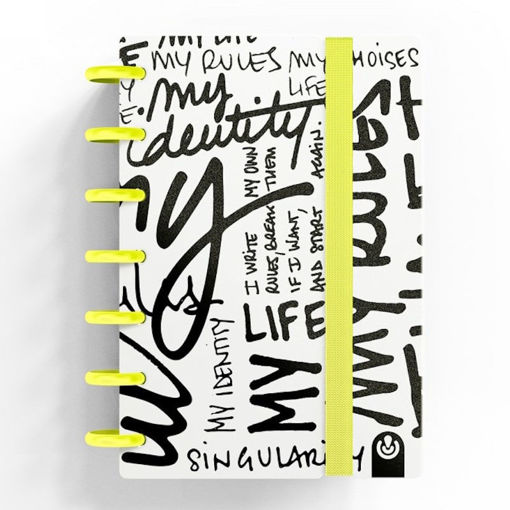 MY LIFE
MY RULES MY CHOISES
LIFE
my
identity.
my
I WRITE MY OWN
RULES, BREAK THEM
IF I WANT,
AND START AGAIN.
LIFE
MY
MY IDENTITY
SINGULARITY
MY RULES